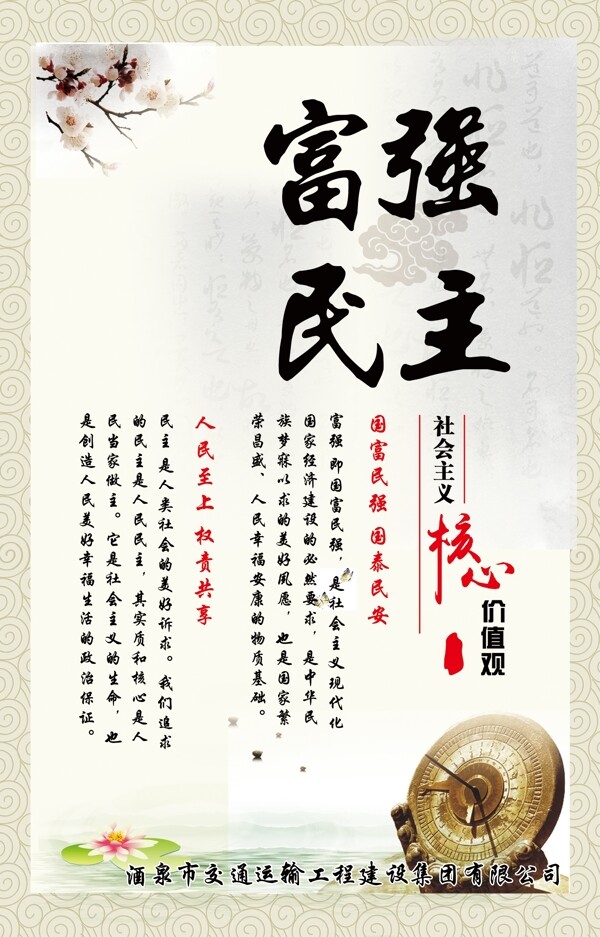 富强
民主
社会主义
核心
价值观
国富民强 国泰民安
富强 即国富民强，是社会主义现代化
国家经济建设的必然要求，是中华民
族梦寐以求的美好夙愿，也是国家繁
荣昌盛、人民幸福安康的物质基础。
人民至上 权责共享
民主 是人类社会的美好诉求。我们追求
的民主是人民民主，其实质和核心是人
民当家做主。它是社会主义的生命，也
是创造人民美好幸福生活的政治保证。
酒泉市交通运输工程建设集团有限公司